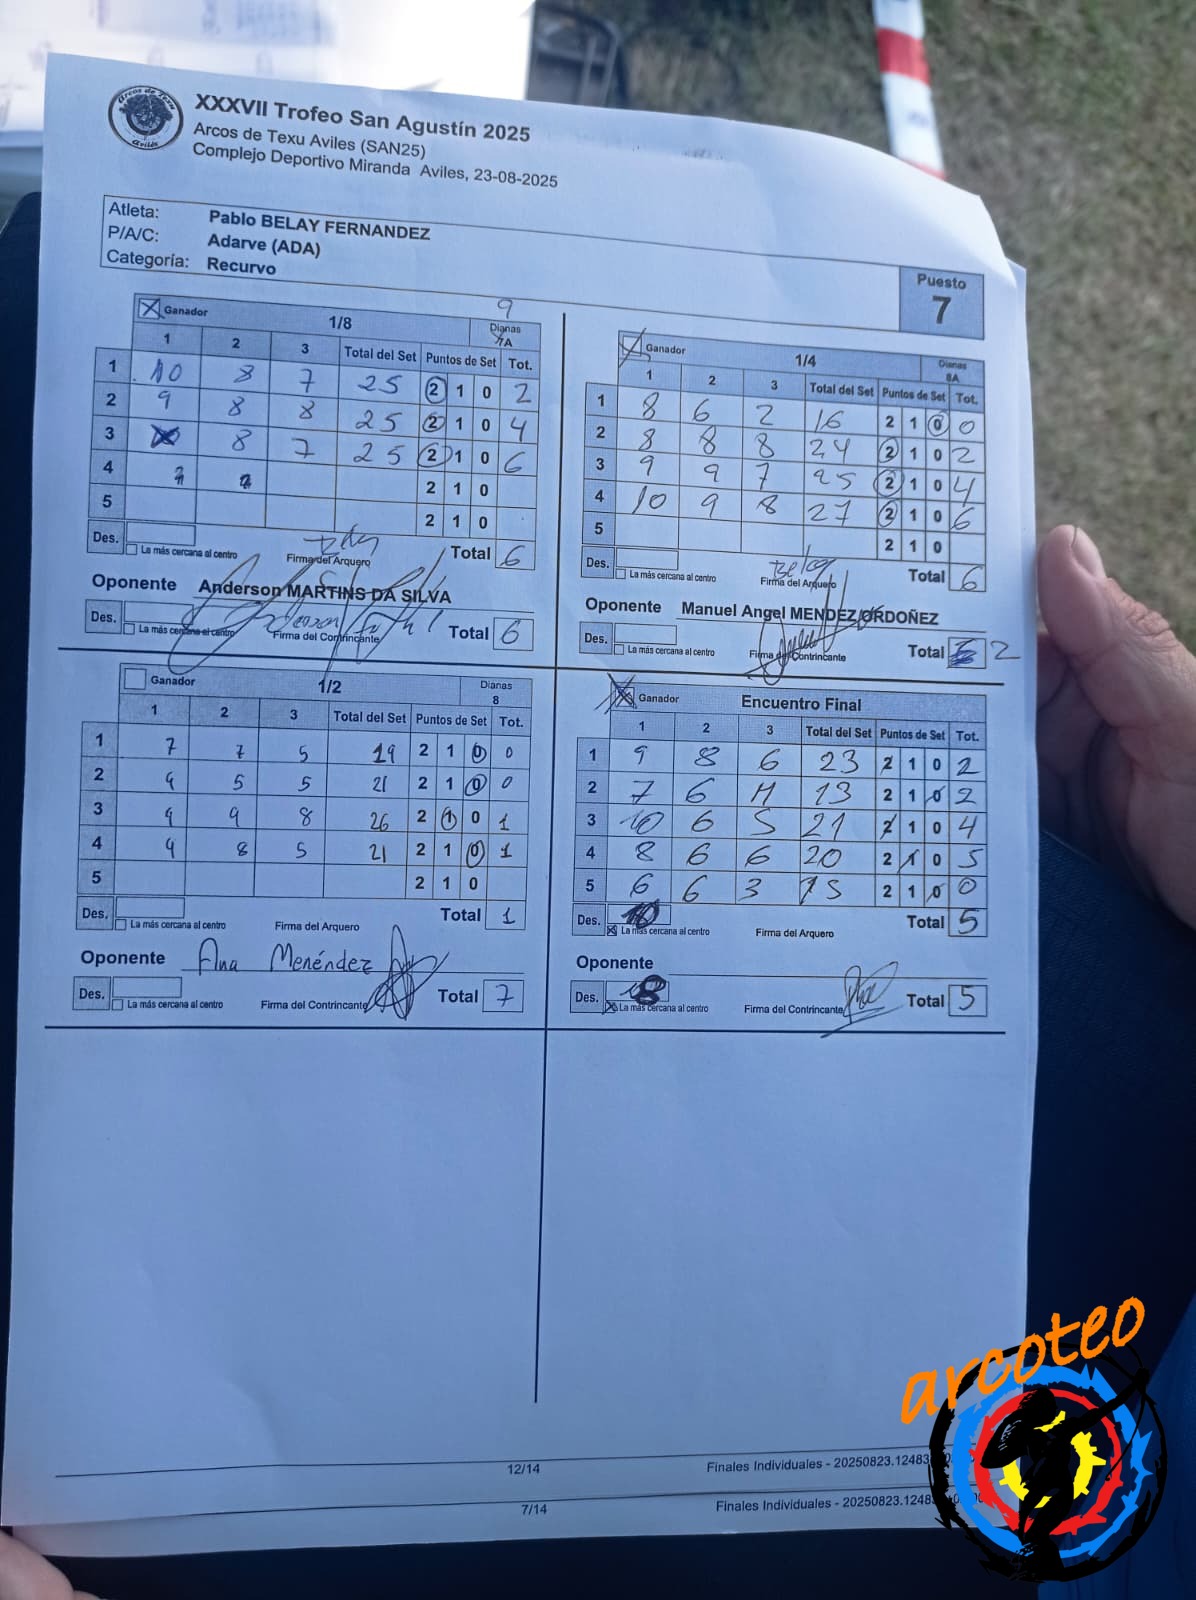 Arcos de Texu
Avilés
XXXVII Trofeo San Agustín 2025
Arcos de Texu Aviles (SAN25)
Complejo Deportivo Miranda Aviles, 23-08-2025
Atleta: Pablo BELAY FERNANDEZ
P/A/C: Adarve (ADA)
Categoría: Recurvo
Puesto
7
9
Ganador 1/8 Dianas
7A
1 2 3 Total del Set Puntos de Set Tot.
1 10 8 7 25 2 1 0 2
2 9 8 8 25 2 1 0 4
3 8 7 25 2 1 0 6
4 2 1 0
5 2 1 0
Des. La más cercana al centro Firma del Arquero Total 6
Oponente Anderson MARTINS DA SILVA
Des. La más cercana al centro Firma del Contrincante Total 6
Ganador 1/4 Dianas
8A
1 2 3 Total del Set Puntos de Set Tot.
1 8 6 2 16 2 1 0 0
2 8 8 8 24 2 1 0 2
3 9 9 7 25 2 1 0 4
4 10 9 8 27 2 1 0 6
5 2 1 0
Des. La más cercana al centro Firma del Arquero Total 6
Oponente Manuel Angel MENDEZ ORDOÑEZ
Des. La más cercana al centro Firma del Contrincante Total 2
Ganador 1/2 Dianas
8
1 2 3 Total del Set Puntos de Set Tot.
1 7 7 5 19 2 1 0 0
2 9 5 5 21 2 1 0 0
3 9 9 8 26 2 1 0 1
4 9 8 5 21 2 1 0 1
5 2 1 0
Des. La más cercana al centro Firma del Arquero Total 1
Oponente Ana Menéndez
Des. La más cercana al centro Firma del Contrincante Total 7
Ganador Encuentro Final
1 2 3 Total del Set Puntos de Set Tot.
1 9 8 6 23 2 1 0 2
2 7 6 M 13 2 1 0 2
3 10 6 5 21 2 1 0 4
4 8 6 6 20 2 1 0 5
5 6 6 3 15 2 1 0 0
Des. 10 La más cercana al centro Firma del Arquero Total 5
Oponente
Des. 8 La más cercana al centro Firma del Contrincante Total 5
12/14 Finales Individuales - 20250823.12483
7/14 Finales Individuales - 20250823.1248
arcoteo